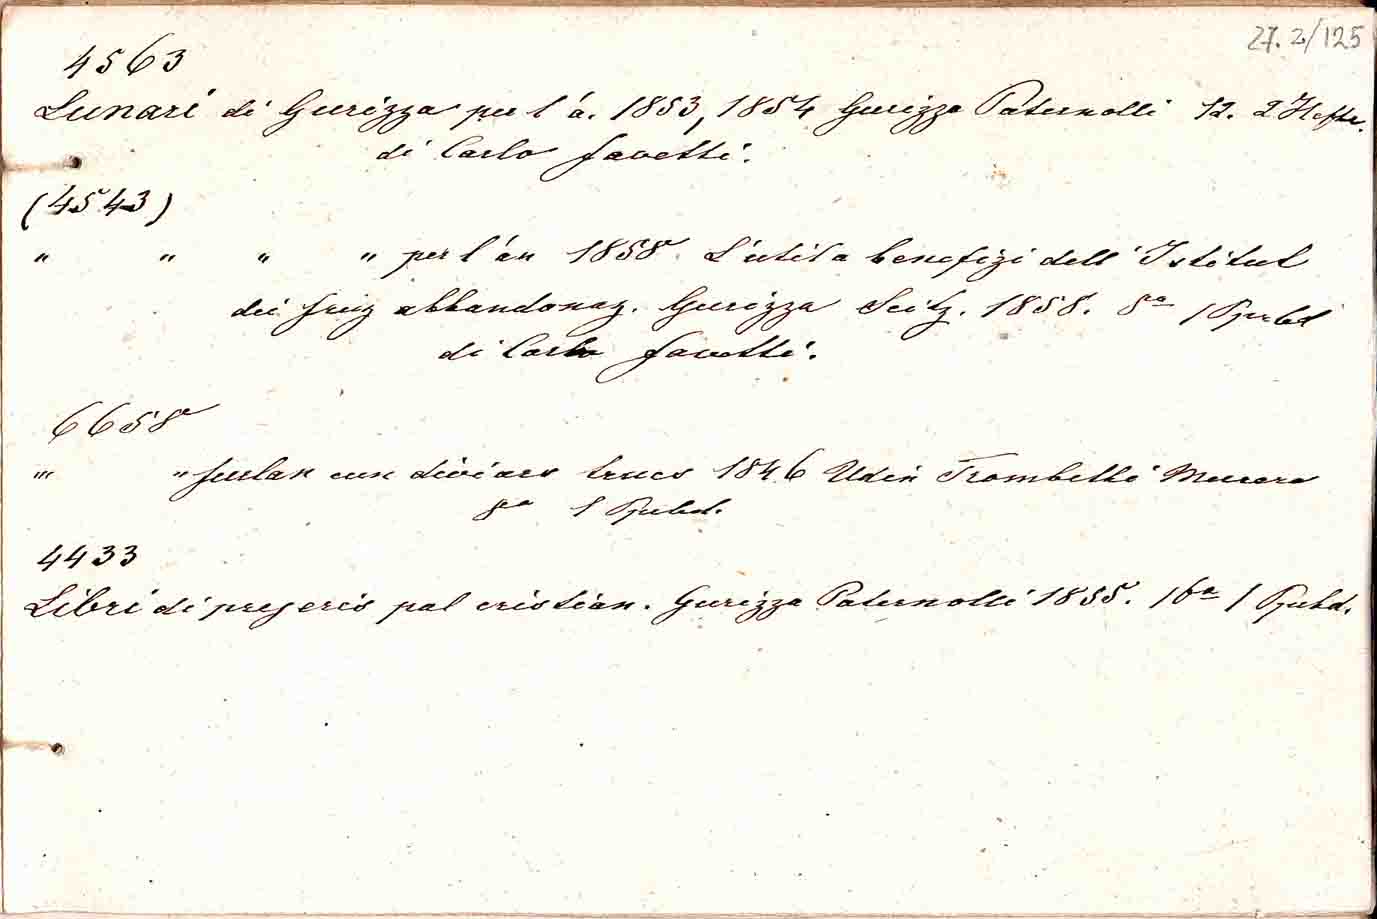 27. 2/125
4563
Lunari di Gurizza per l'á. 1853, 1854 Gurizza Paternolli 12. 2 Hefte.
di Carlo Favetti.
(4543)
" " " " per l'án 1858. L'utila benefizi dell' Istitut
dei fruz abbandonaz. Gurizza Seitz. 1858. 8º 1 Ppbd
di Carlo Favetti.
6658
" " furlan cun diviars trucs 1846 Udin Trombetti Murero
8º 1 Ppbd.
4433
Libri di prejeris pal cristián. Gurizza Paternolli 1855. 16º 1 Ppbd.